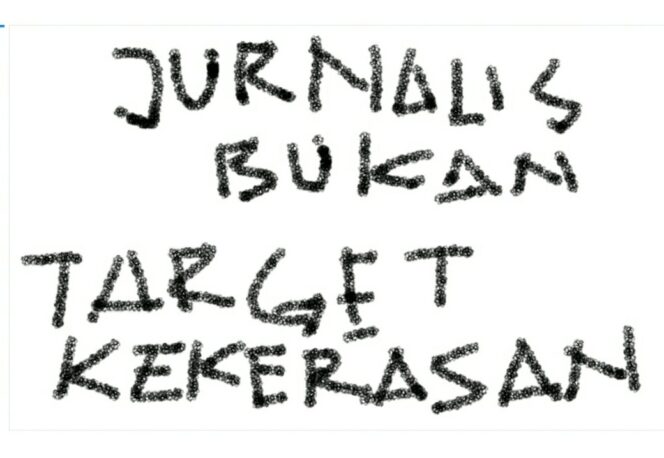 JURNALIS
BUKAN
TARGET
KEKERASAN